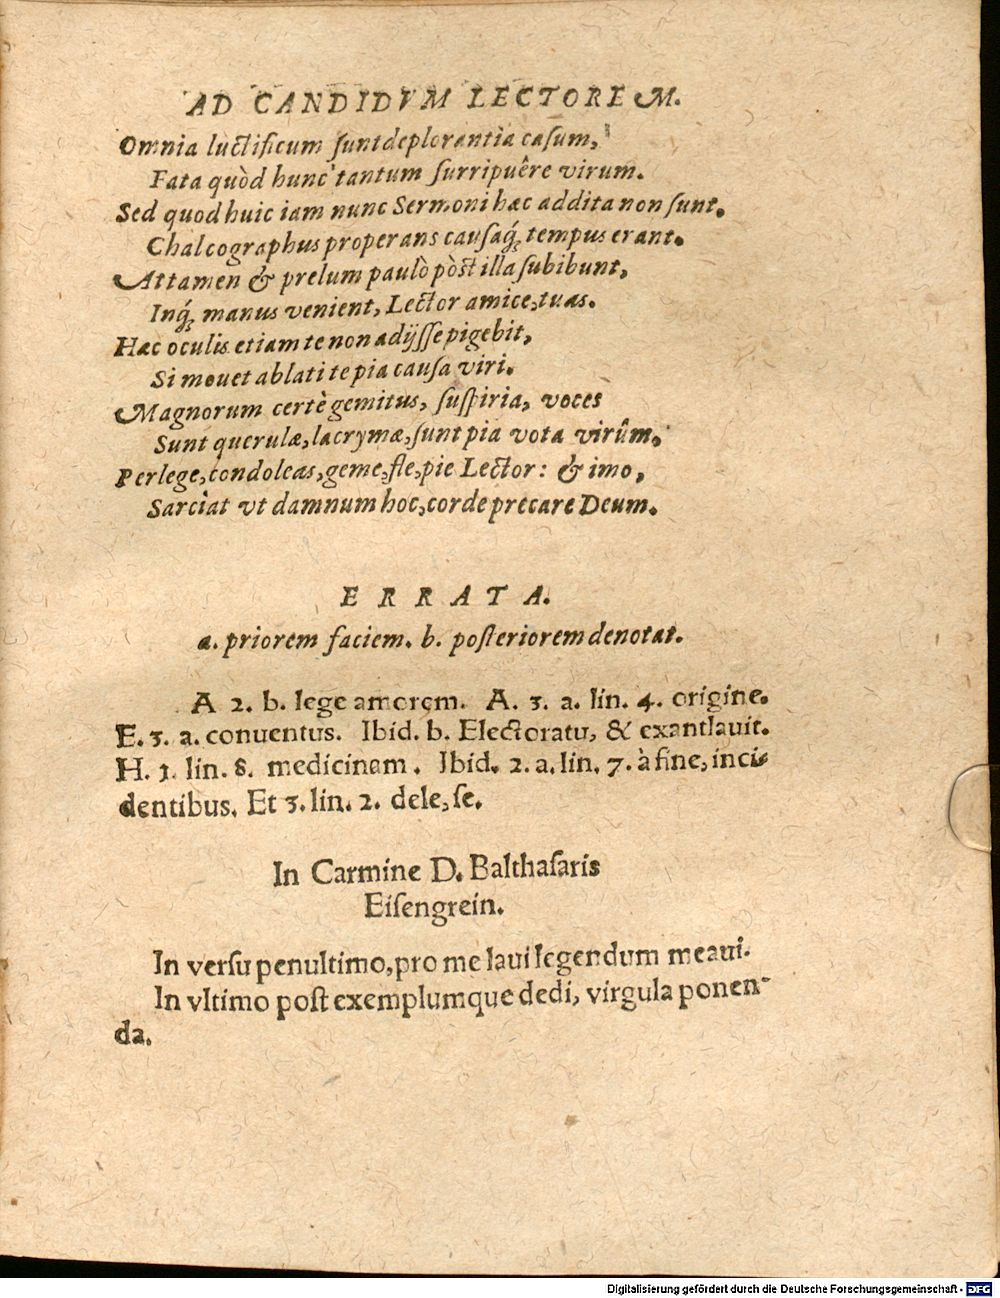 AD CANDIDVM LECTOREM.
Omnia luctificum ſunt deplorantia caſum,
Fata quòd hunc tantum ſurripuêre virum.
Sed quod huic iam nunc Sermoni hæc addita non ſunt.
Chalcographus properans cauſaq́; tempus erant.
Attamen & prelum paulò pòst illa ſubibunt,
Inq́; manus venient, Lector amice, tuas.
Hæc oculis etiam te non adijſſe pigebit,
Si mouet ablati te pia cauſa viri.
Magnorum certè gemitus, ſuſpiria, voces
Sunt querulæ, lacrymæ, ſunt pia vota virûm.
Perlege, condoleas, geme, fle, pie Lector: & imo,
Sarciat vt damnum hoc, corde precare Deum.
ERRATA.
a. priorem faciem. b. poſteriorem denotat.
A 2. b. lege amorem. A. 3. a. lin. 4. origine.
E. 3. a. conuentus. Ibid. b. Electoratu, & exantlauit.
H. 1. lin. 8. medicinam. Ibid. 2. a. lin. 7. à fine, inci-
dentibus. Et 3. lin. 2. dele, ſe.
In Carmine D. Balthaſaris
Eiſengrein.
In verſu penultimo, pro me laui legendum meaui.
In vltimo poſt exemplumque dedi, virgula ponen-
da.
Digitalisierung gefördert durch die Deutsche Forschungsgemeinschaft - DFG